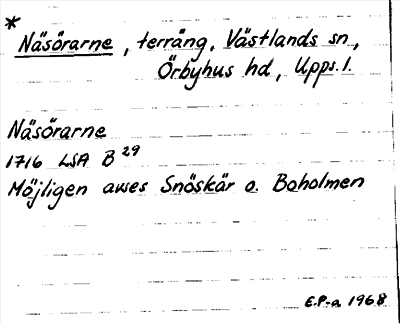 *
Näsörarne, terräng, Västlands sn,
Örbyhus hd, Upps. l.
Näsörarne
1716 LSA B 29
Möjligen avses Snöskär o. Boholmen
E.P-a 1968